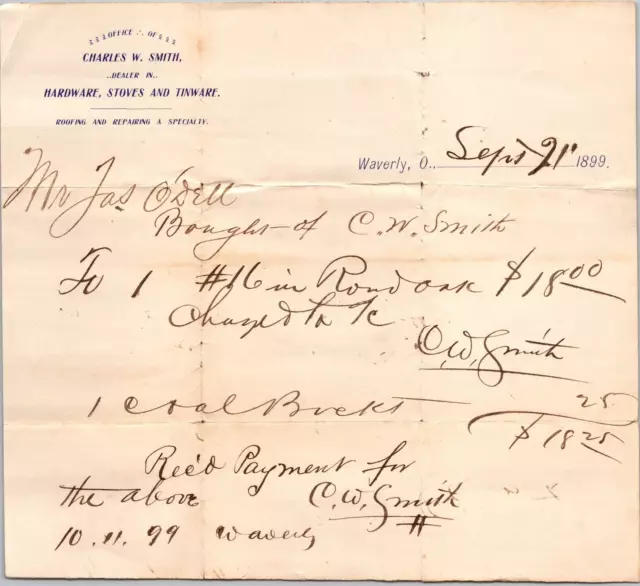 OFFICE OF
CHARLES W. SMITH,
..DEALER IN..
HARDWARE, STOVES AND TINWARE.
ROOFING AND REPAIRING A SPECIALTY.
Waverly, O.. Sept 21 1899.
Mr Jas O'Dell
Bought of C. W. Smith
To 1 #16 in Rond oak $18.00
Charged to %
C.W. Smith
1 Coal Buckt 25
$18.25
Rec'd Payment for
the above C.W. Smith
10.11.99 Waverly